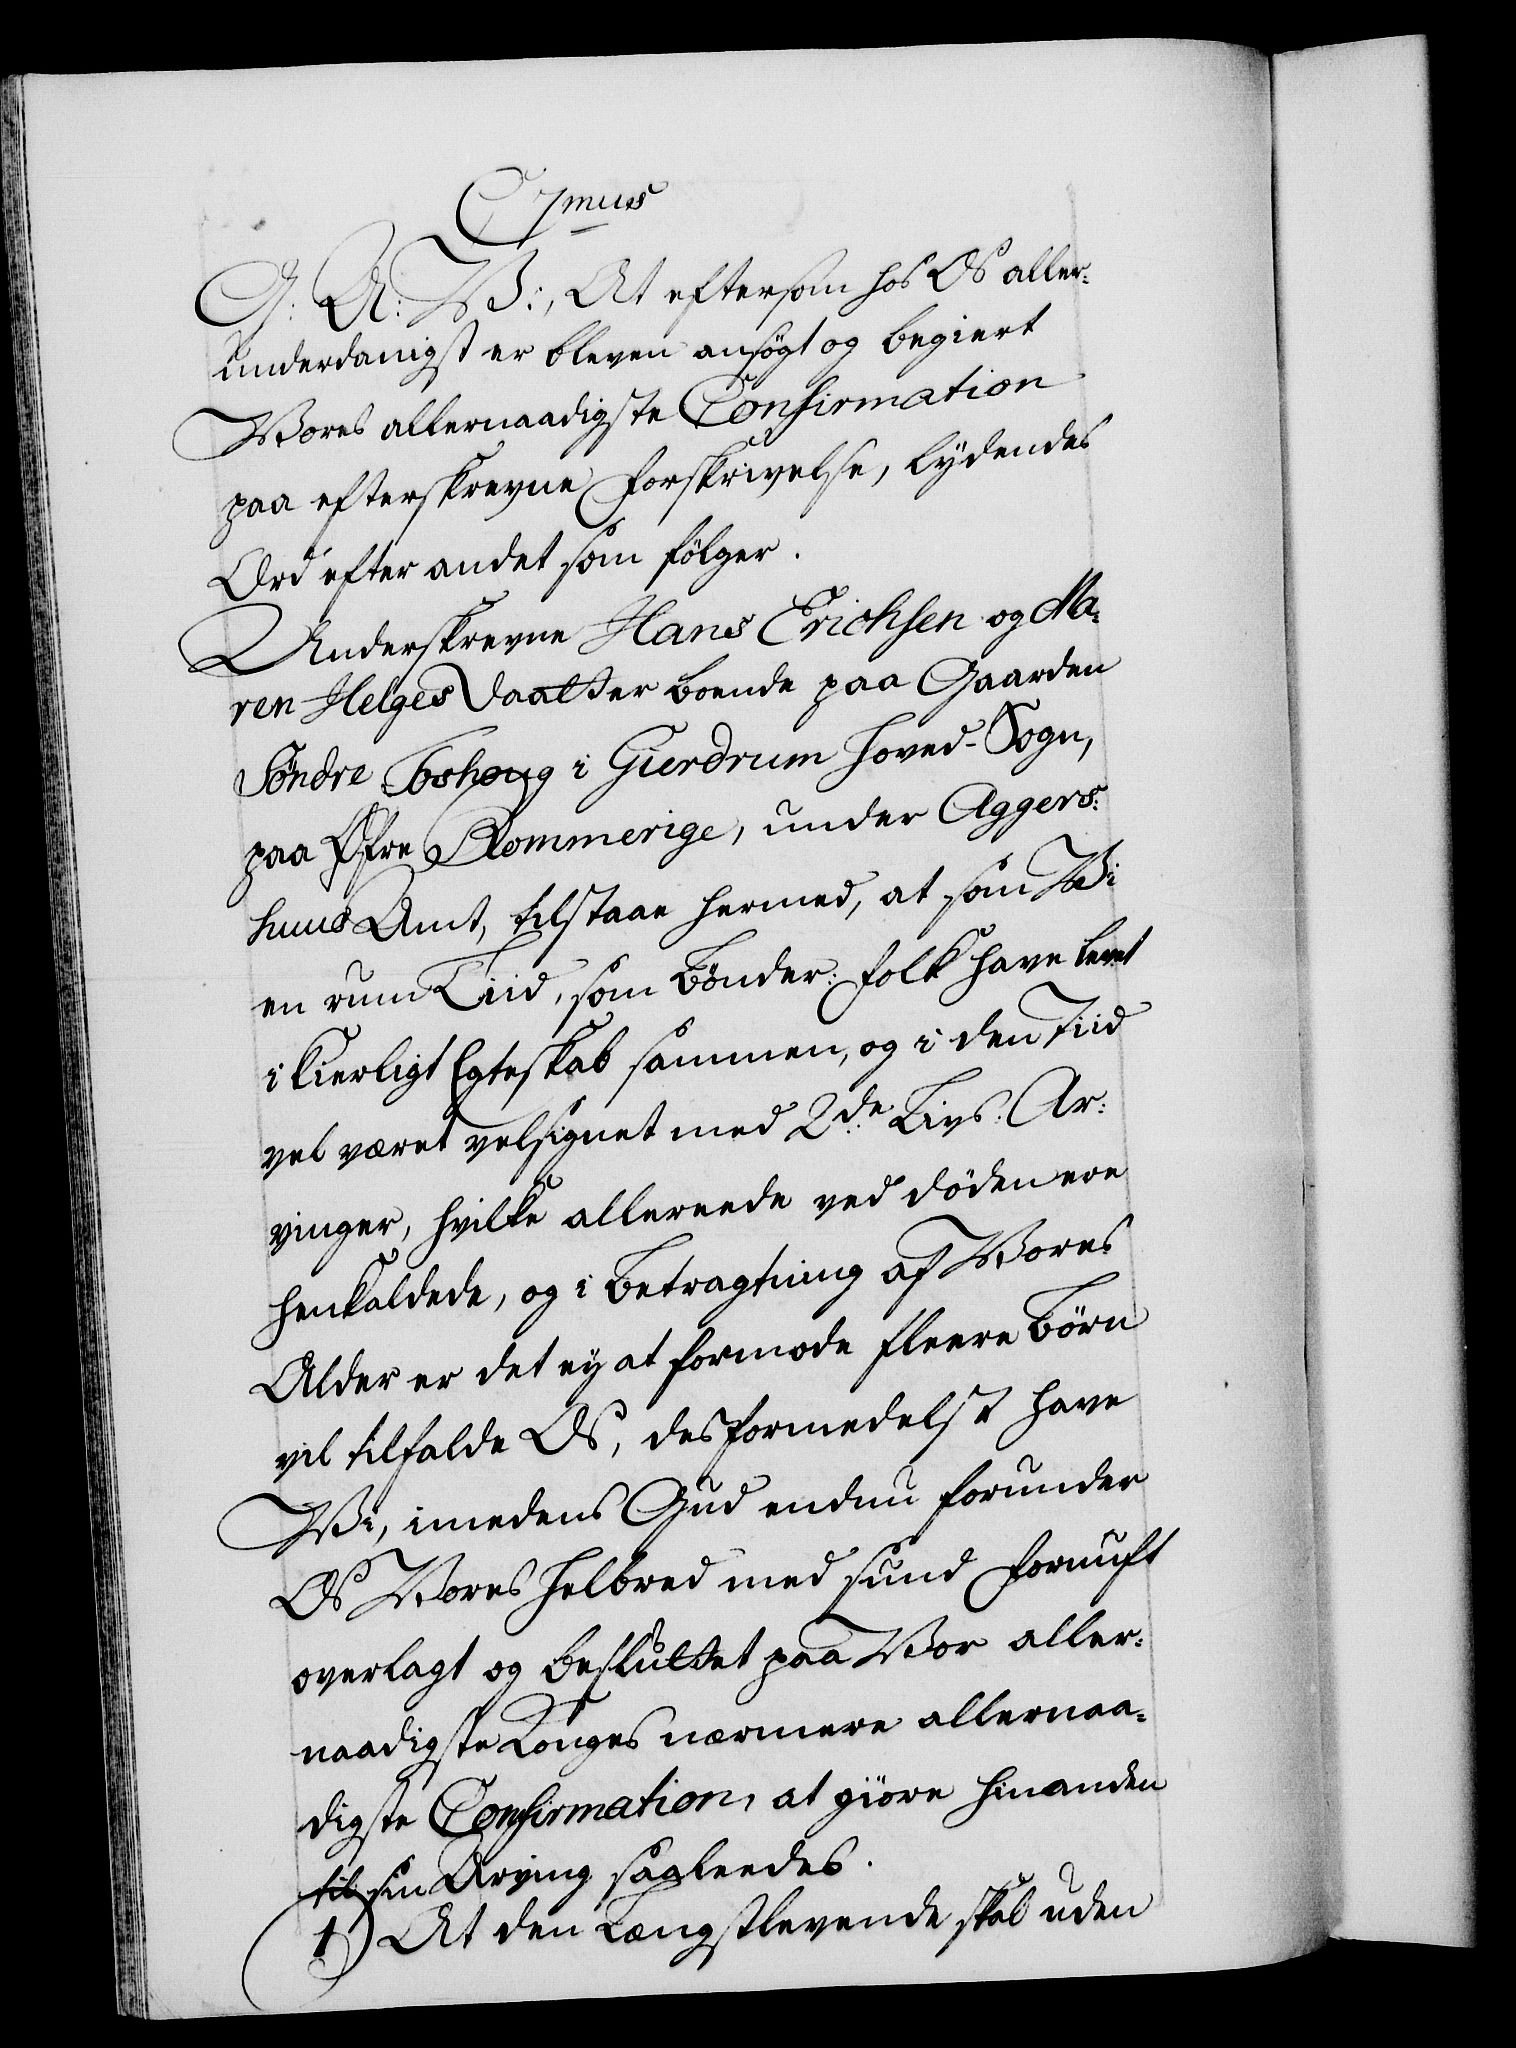 C 7mus
G: A: V:, At eftersom hos Os aller-
underdanigst er bleven ansøgt og begiert
Vores allernaadigste Confirmation
paa efterskrevne Forskrivelse, lÿdendes
Ord efter andet som følger.
Underskrevne Hans Erichsen og Ma-
ren Helges Daatter boende paa Gaarden
Söndre Toshoug i Gierdrum Hoved-Sogn,
paa Øfre Rommerige, under Aggers-
huus Amt, tilstaae hermed, at som Vi
en rum Tiid, som Bønder-folk have levet
i kierligt Egteskab sammen, og i den Tiid
vel været velsignet med 2de Livs-Ar-
vinger, hvilke allereede ved døden ere
henkaldede, og i Betragtning af Vores
Alder er det eÿ at formode fleere Børn
vil tilfalde Os, desformedelst have
Vi, imedens Gud endnu forunder
Os Vores Helbred med sund Fornuft
overlagt og besluttet paa Vor aller-
naadigste Konges nærmere allernaa-
digste Confirmation, at giøre hinanden
til sin Arving saaleedes.
1) At den Længstlevende skal uden